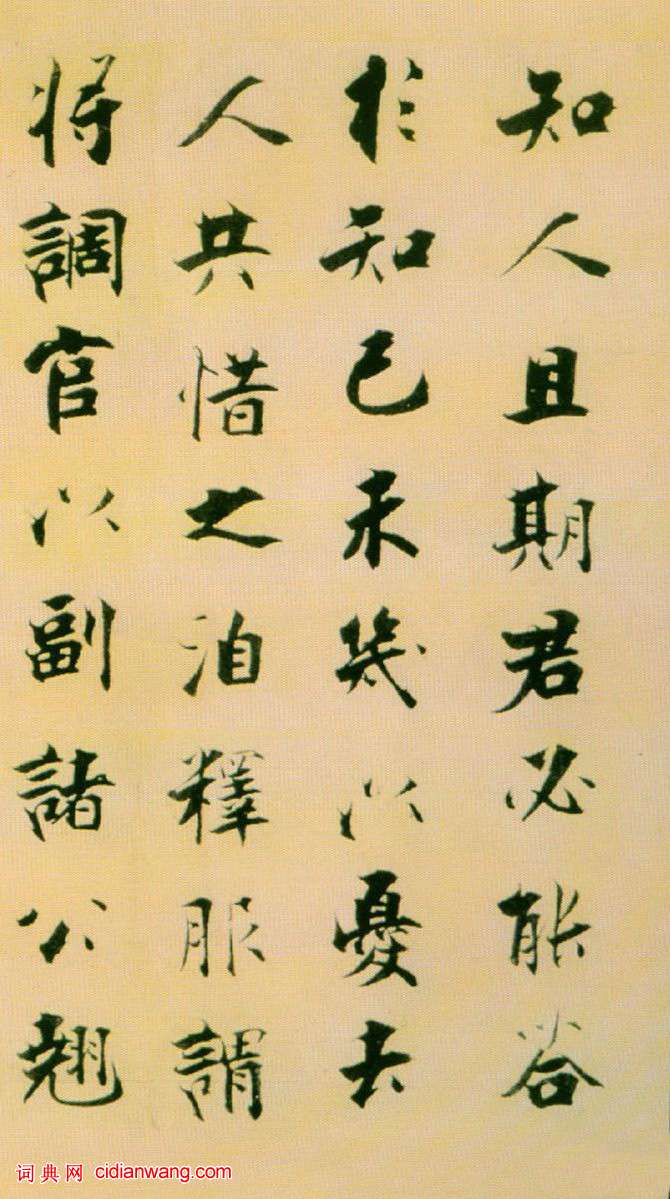 知人且期君必能荅
於知己未幾以憂去
人共惜之洎釋服謂
將調官以副諸公翹
词典网 cidianwang.com